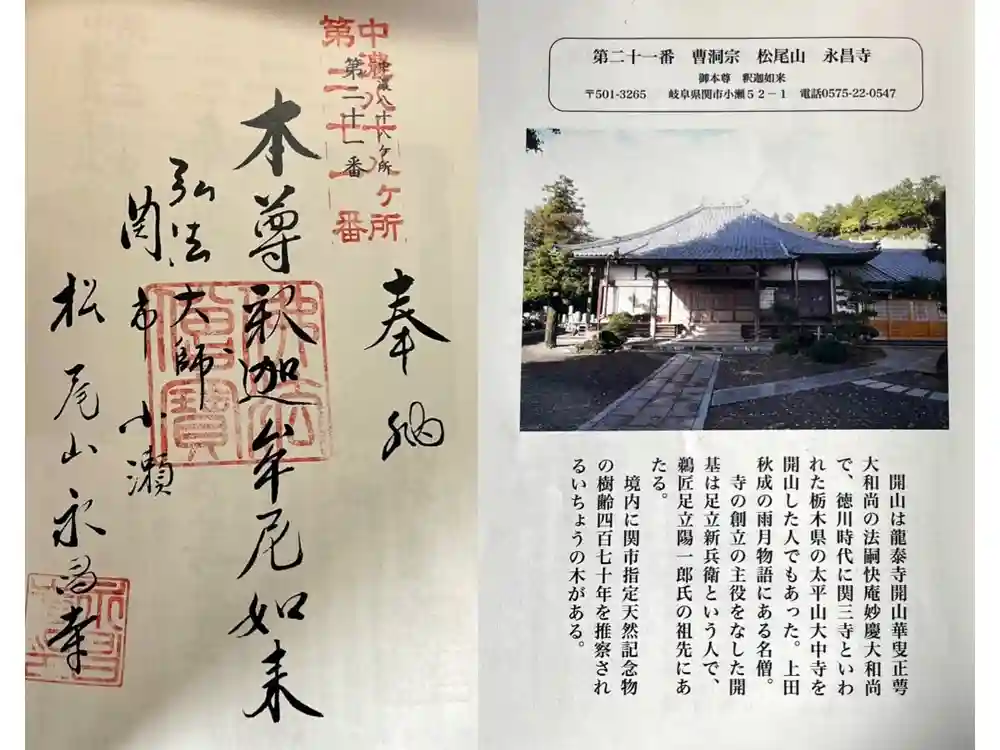 中濃八十八ヶ所
第二十一番
中濃八十八ヶ所
第二十一番
奉納
本尊釈迦牟尼如来
佛法
僧寳
弘法大師
関市小瀬
松尾山永昌寺
第二十一番　曹洞宗　松尾山　永昌寺
御本尊　釈迦如来
〒501-3265　岐阜県関市小瀬５２－１　電話0575-22-0547
開山は龍泰寺開山華叟正萼
大和尚の法嗣快庵妙慶大和尚
で、徳川時代に関三寺といわ
れた栃木県の太平山大中寺を
開山した人でもあった。上田
秋成の雨月物語にある名僧。
寺の創立の主役をなした開
基は足立新兵衛という人で、
鵜匠足立陽一郎氏の祖先にあ
たる。
境内に関市指定天然記念物
の樹齢四百七十年を推察され
るいちょうの木がある。